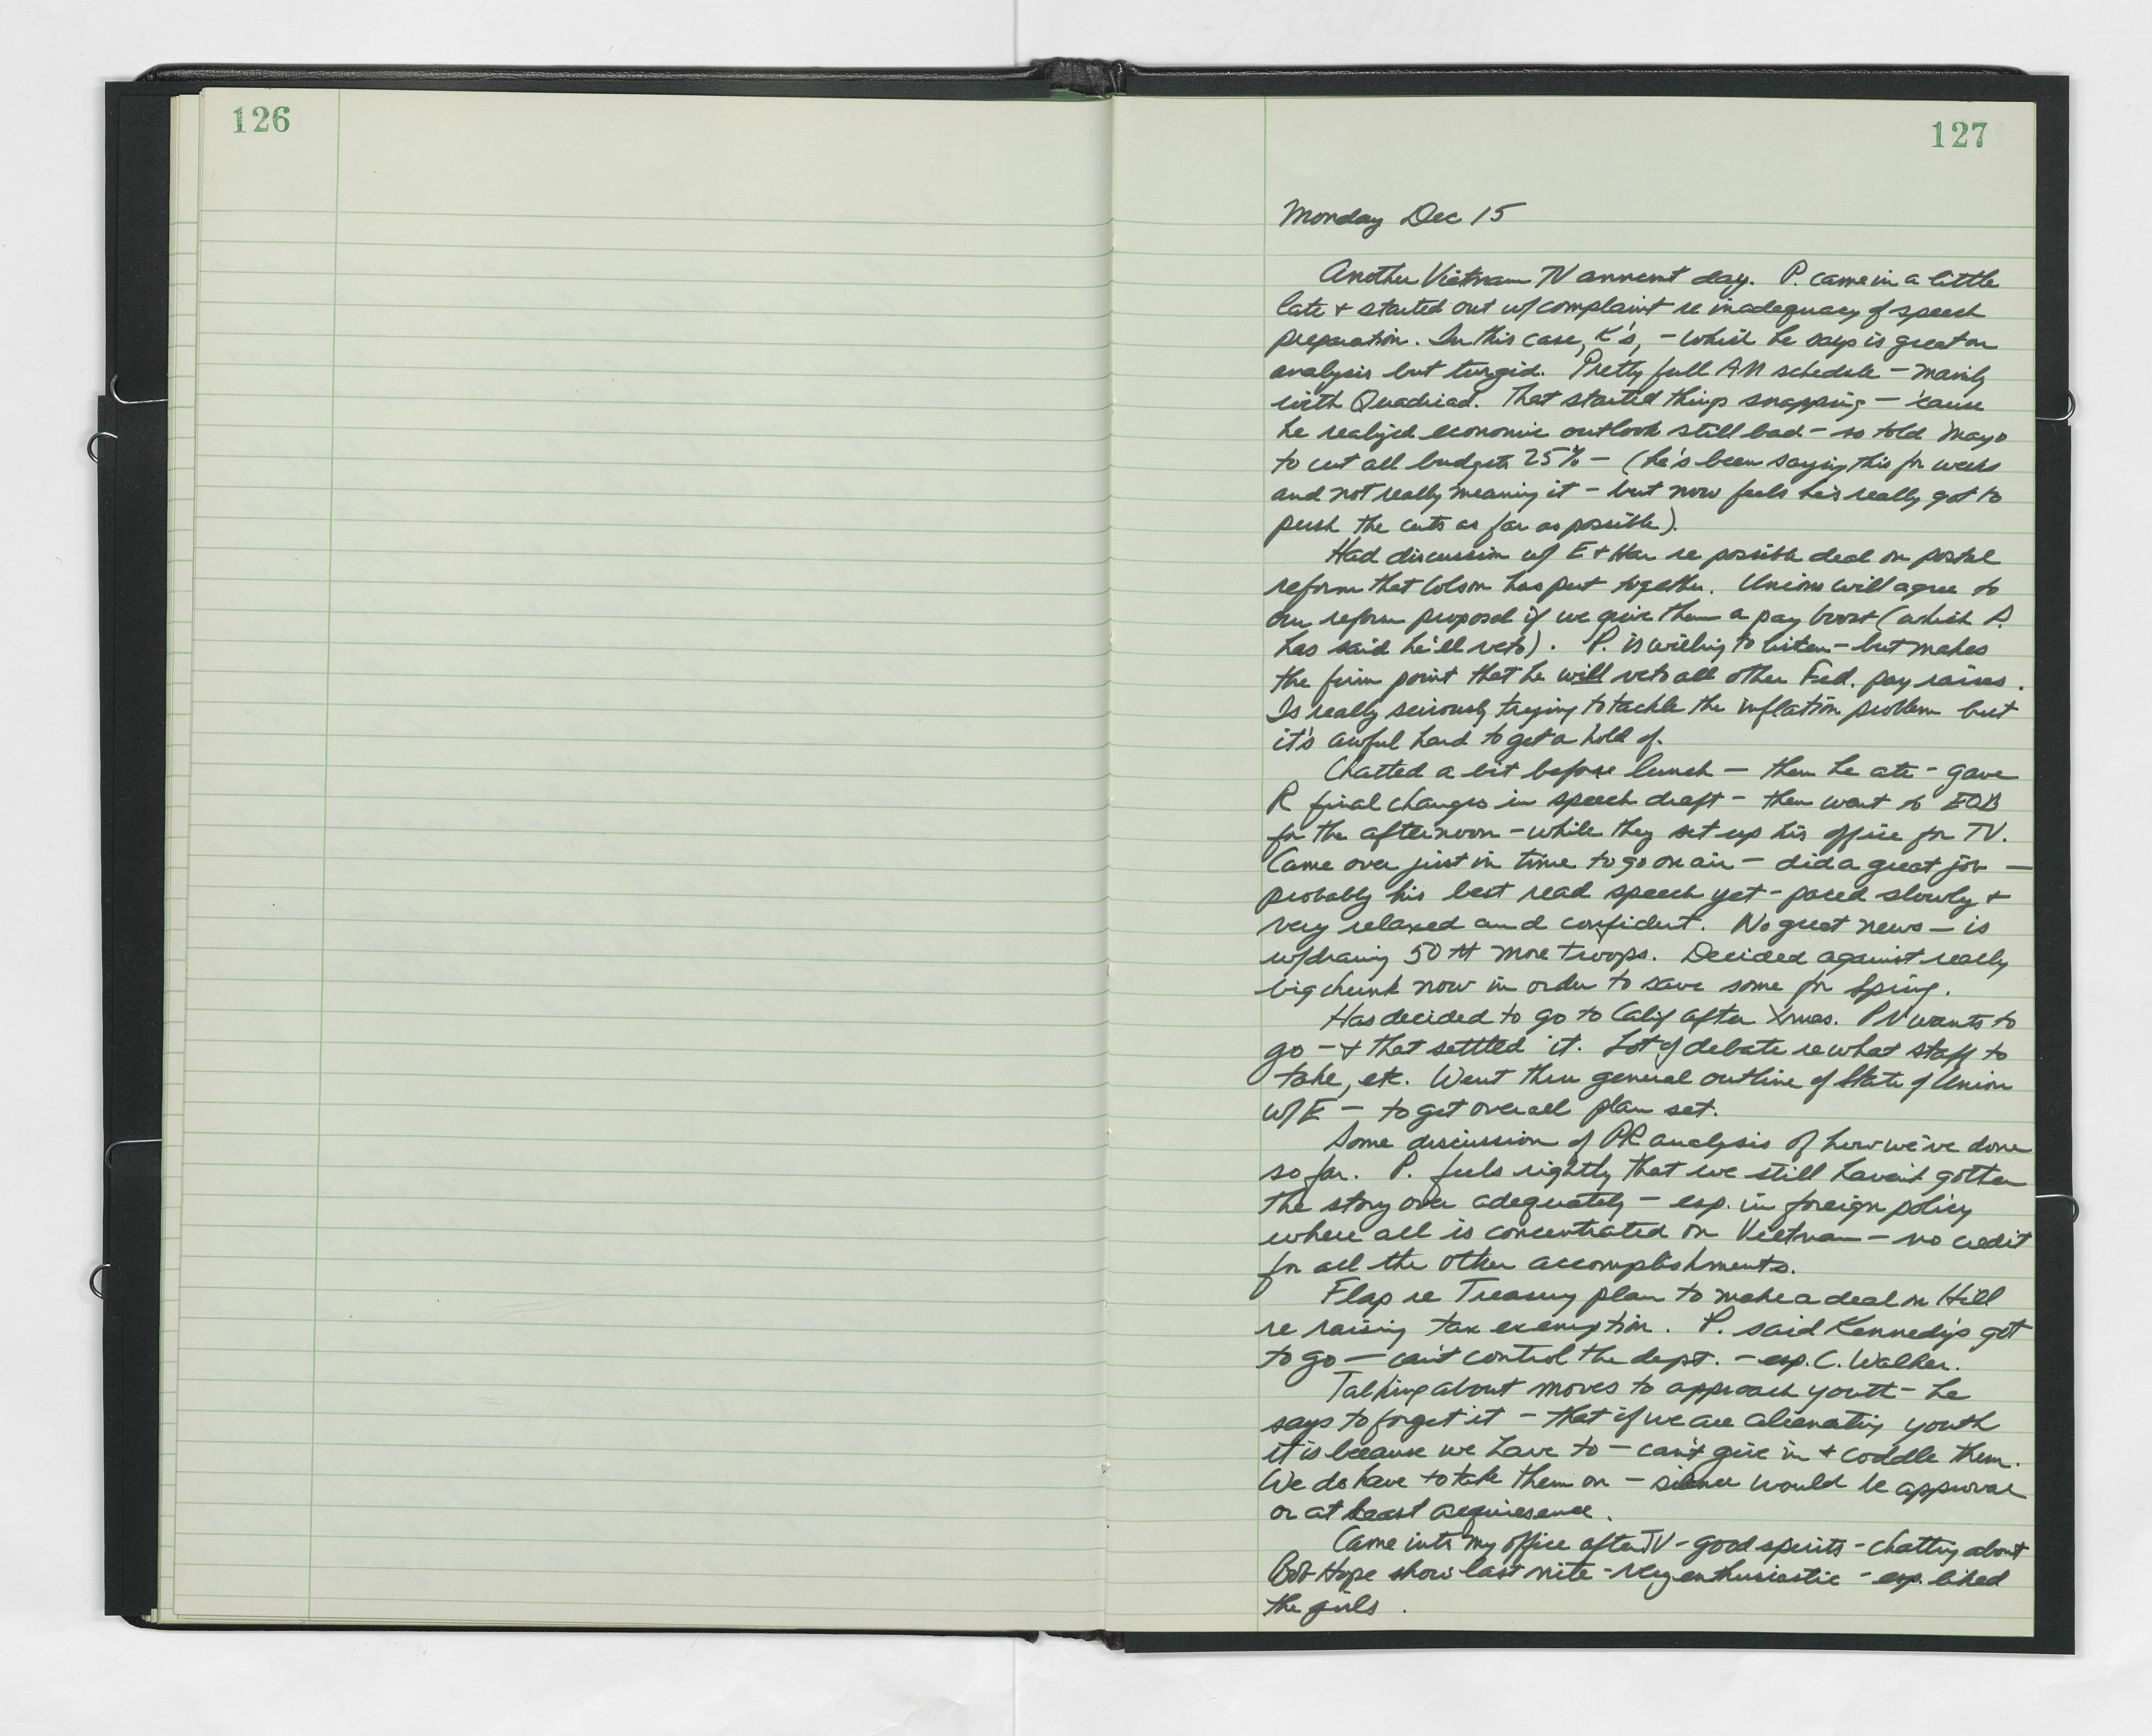 126
127
Monday Dec 15
Another Vietnam TV anncmt day. P. came in a little
late + started out w/ complaint re inadequacy of speech
preparation. In this case, K's, - which he says is great on
analysis but turgid. Pretty full AM schedule - mainly
with Quadriad. That started things snapping - 'cause
he realized economic outlook still bad - so told Mayo
to cut all budgets 25% - (he's been saying this for weeks
and not really meaning it - but now feels he's really got to
push the cuts as far as possible).
Had discussion w/ E + Har re possible deal on postal
reform that Colson has put together. Unions will agree to
our reform proposal if we give them a pay boost (which P.
has said he'll veto). P. is willing to listen - but makes
the firm point that he will veto all other Fed. pay raises.
Is really seriously trying to tackle the inflation problem but
it's awful hard to get a hold of.
Chatted a bit before lunch - then he ate - gave
R final changes in speech draft - then went to EOB
for the afternoon - while they set up his office for TV.
Came over just in time to go on air - did a great job -
probably his best read speech yet - paced slowly +
very relaxed and confident. No great news - is
w/drawing 50 M more troops. Decided against really
big chunk now in order to save some for Spring.
Has decided to go to Calif after Xmas. PN wants to
go - + that settled it. Lot of debate re what staff to
take, etc. Went thru general outline of State of Union
w/ E - to get overall plan set.
Some discussion of PR analysis of how we've done
so far. P. feels rightly that we still haven't gotten
the story over adequately - esp. in foreign policy
where all is concentrated on Vietnam - no credit
for all the other accomplishments.
Flap re Treasury plan to make a deal on Hill
re raising tax exemption. P. said Kennedy's got
to go - can't control the dept. - esp. C. Walker.
Talking about moves to approach youth - he
says to forget it - that if we are alienating youth
it is because we have to - can't give in + coddle them.
We do have to take them on - silence would be approval
or at least acquiesence.
Came into my office after TV - good spirits - chatting about
Bob Hope show last nite - very enthusiastic - esp. liked
the girls.